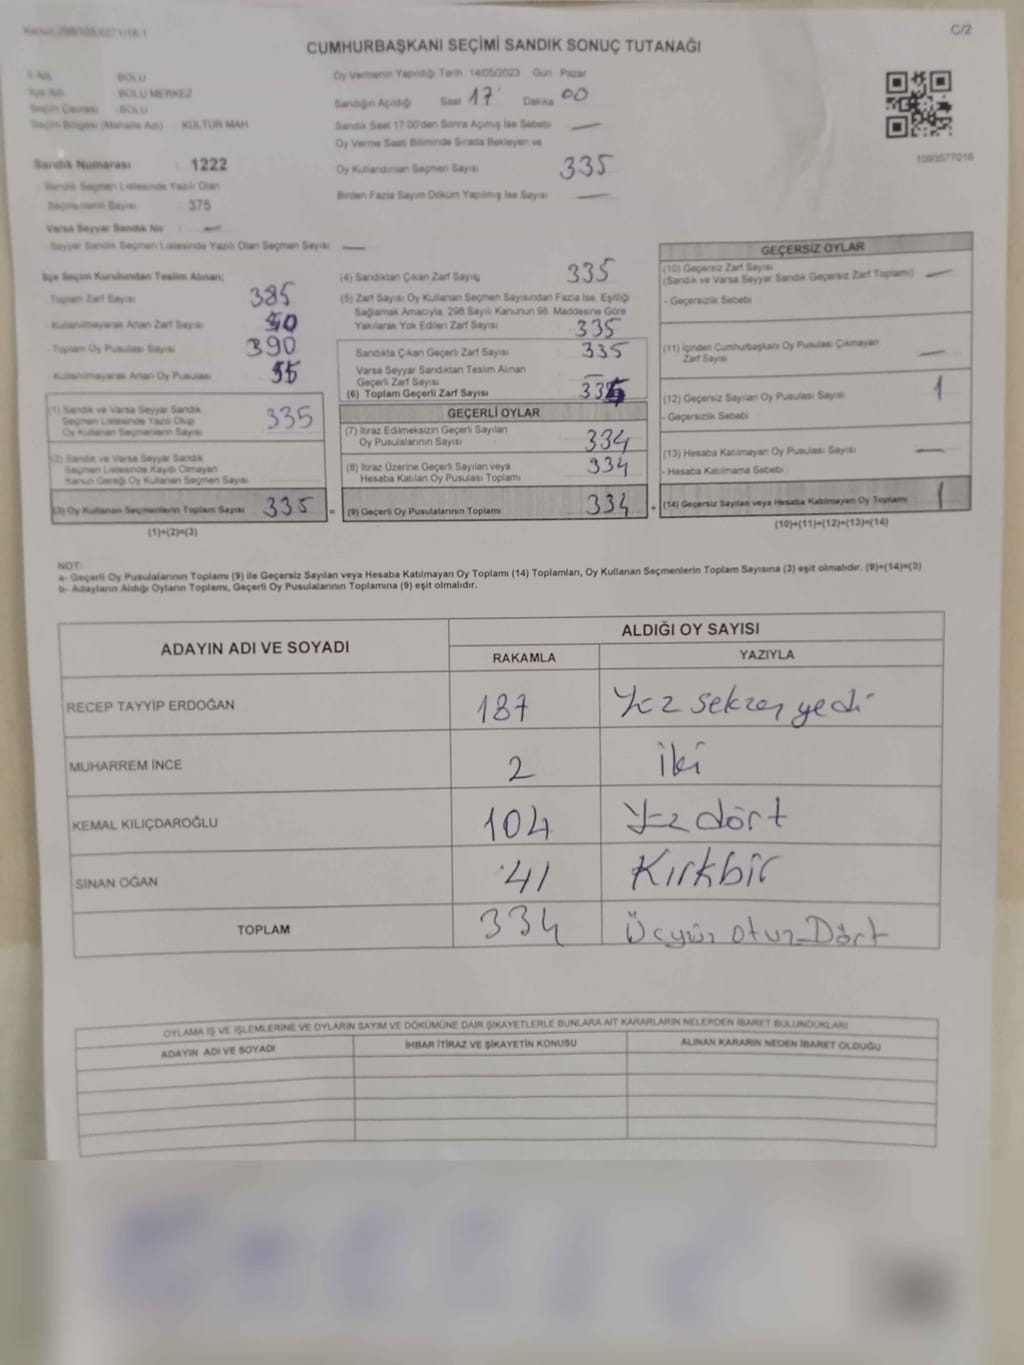 C/2
CUMHURBAŞKANI SEÇİMİ SANDIK SONUÇ TUTANAĞI
İl Adı : BOLU
İlçe Adı : BOLU MERKEZ
Seçim Çevresi : BOLU
Seçim Bölgesi (Mahalle Adı) : KÜLTÜR MAH
Sandık Numarası : 1222
Sandık Seçmen Listesinde Yazılı Olan
Seçmenlerin Sayısı : 375
Varsa Seyyar Sandık No : —
Seyyar Sandık Seçmen Listesinde Yazılı Olan Seçmen Sayısı : —
Oy Vermenin Yapıldığı Tarih 14/05/2023 Gün Pazar
Sandığın Açıldığı Saat 17 Dakika 00
Sandık Saat 17:00'den Sonra Açımış İse Sebebi —
Oy Verme Saati Bitiminde Sırada Bekleyen ve
Oy Kullandırılan Seçmen Sayısı 335
Birden Fazla Sayım Döküm Yapılmış İse Sayısı —
1093577016
İlçe Seçim Kurulundan Teslim Alınan;
- Toplam Zarf Sayısı 385
- Kullanılmayarak Artan Zarf Sayısı 50
- Toplam Oy Pusulası Sayısı 390
- Kullanılmayarak Artan Oy Pusulası 55
(1) Sandık ve Varsa Seyyar Sandık
Seçmen Listesinde Yazılı Olup
Oy Kullanan Seçmenlerin Sayısı 335
(2) Sandık ve Varsa Seyyar Sandık
Seçmen Listesinde Kayıtlı Olmayan
Kanun Gereği Oy Kullanan Seçmen Sayısı
(3) Oy Kullanan Seçmenlerin Toplam Sayısı 335 =
(1)+(2)=(3)
(4) Sandıktan Çıkan Zarf Sayısı 335
(5) Zarf Sayısı Oy Kullanan Seçmen Sayısından Fazla İse, Eşitliği
Sağlamak Amacıyla, 298 Sayılı Kanunun 98. Maddesine Göre
Yakılarak Yok Edilen Zarf Sayısı 335
Sandıkta Çıkan Geçerli Zarf Sayısı 335
Varsa Seyyar Sandıktan Teslim Alınan
Geçerli Zarf Sayısı —
(6) Toplam Geçerli Zarf Sayısı 335
GEÇERLİ OYLAR
(7) İtiraz Edilmeksizin Geçerli Sayılan
Oy Pusulalarının Sayısı 334
(8) İtiraz Üzerine Geçerli Sayılan veya
Hesaba Katılan Oy Pusulası Toplamı 334
(9) Geçerli Oy Pusulalarının Toplamı 334 +
GEÇERSİZ OYLAR
(10) Geçersiz Zarf Sayısı
(Sandık ve Varsa Seyyar Sandık Geçersiz Zarf Toplamı) —
- Geçersizlik Sebebi
(11) İçinden Cumhurbaşkanı Oy Pusulası Çıkmayan
Zarf Sayısı —
(12) Geçersiz Sayılan Oy Pusulası Sayısı 1
- Geçersizlik Sebebi
(13) Hesaba Katılmayan Oy Pusulası Sayısı —
- Hesaba Katılmama Sebebi
(14) Geçersiz Sayılan veya Hesaba Katılmayan Oy Toplamı 1
(10)+(11)+(12)+(13)=(14)
NOT:
a- Geçerli Oy Pusulalarının Toplamı (9) ile Geçersiz Sayılan veya Hesaba Katılmayan Oy Toplamı (14) Toplamları, Oy Kullanan Seçmenlerin Toplam Sayısına (3) eşit olmalıdır. (9)+(14)=(3)
b- Adayların Aldığı Oyların Toplamı, Geçerli Oy Pusulalarının Toplamına (9) eşit olmalıdır.
ADAYIN ADI VE SOYADI ALDIĞI OY SAYISI
RAKAMLA YAZIYLA
RECEP TAYYİP ERDOĞAN 187 Yüz seksen yedi
MUHARREM İNCE 2 iki
KEMAL KILIÇDAROĞLU 104 Yüz dört
SİNAN OĞAN 41 Kırkbir
TOPLAM 334 Üçyüz otuz Dört
OYLAMA İŞ VE İŞLEMLERİNE VE OYLARIN SAYIM VE DÖKÜMÜNE DAİR ŞİKAYETLERLE BUNLARA AİT KARARLARIN NELERDEN İBARET BULUNDUKLARI
ADAYIN ADI VE SOYADI İHBAR İTİRAZ VE ŞİKAYETİN KONUSU ALINAN KARARIN NEDEN İBARET OLDUĞU